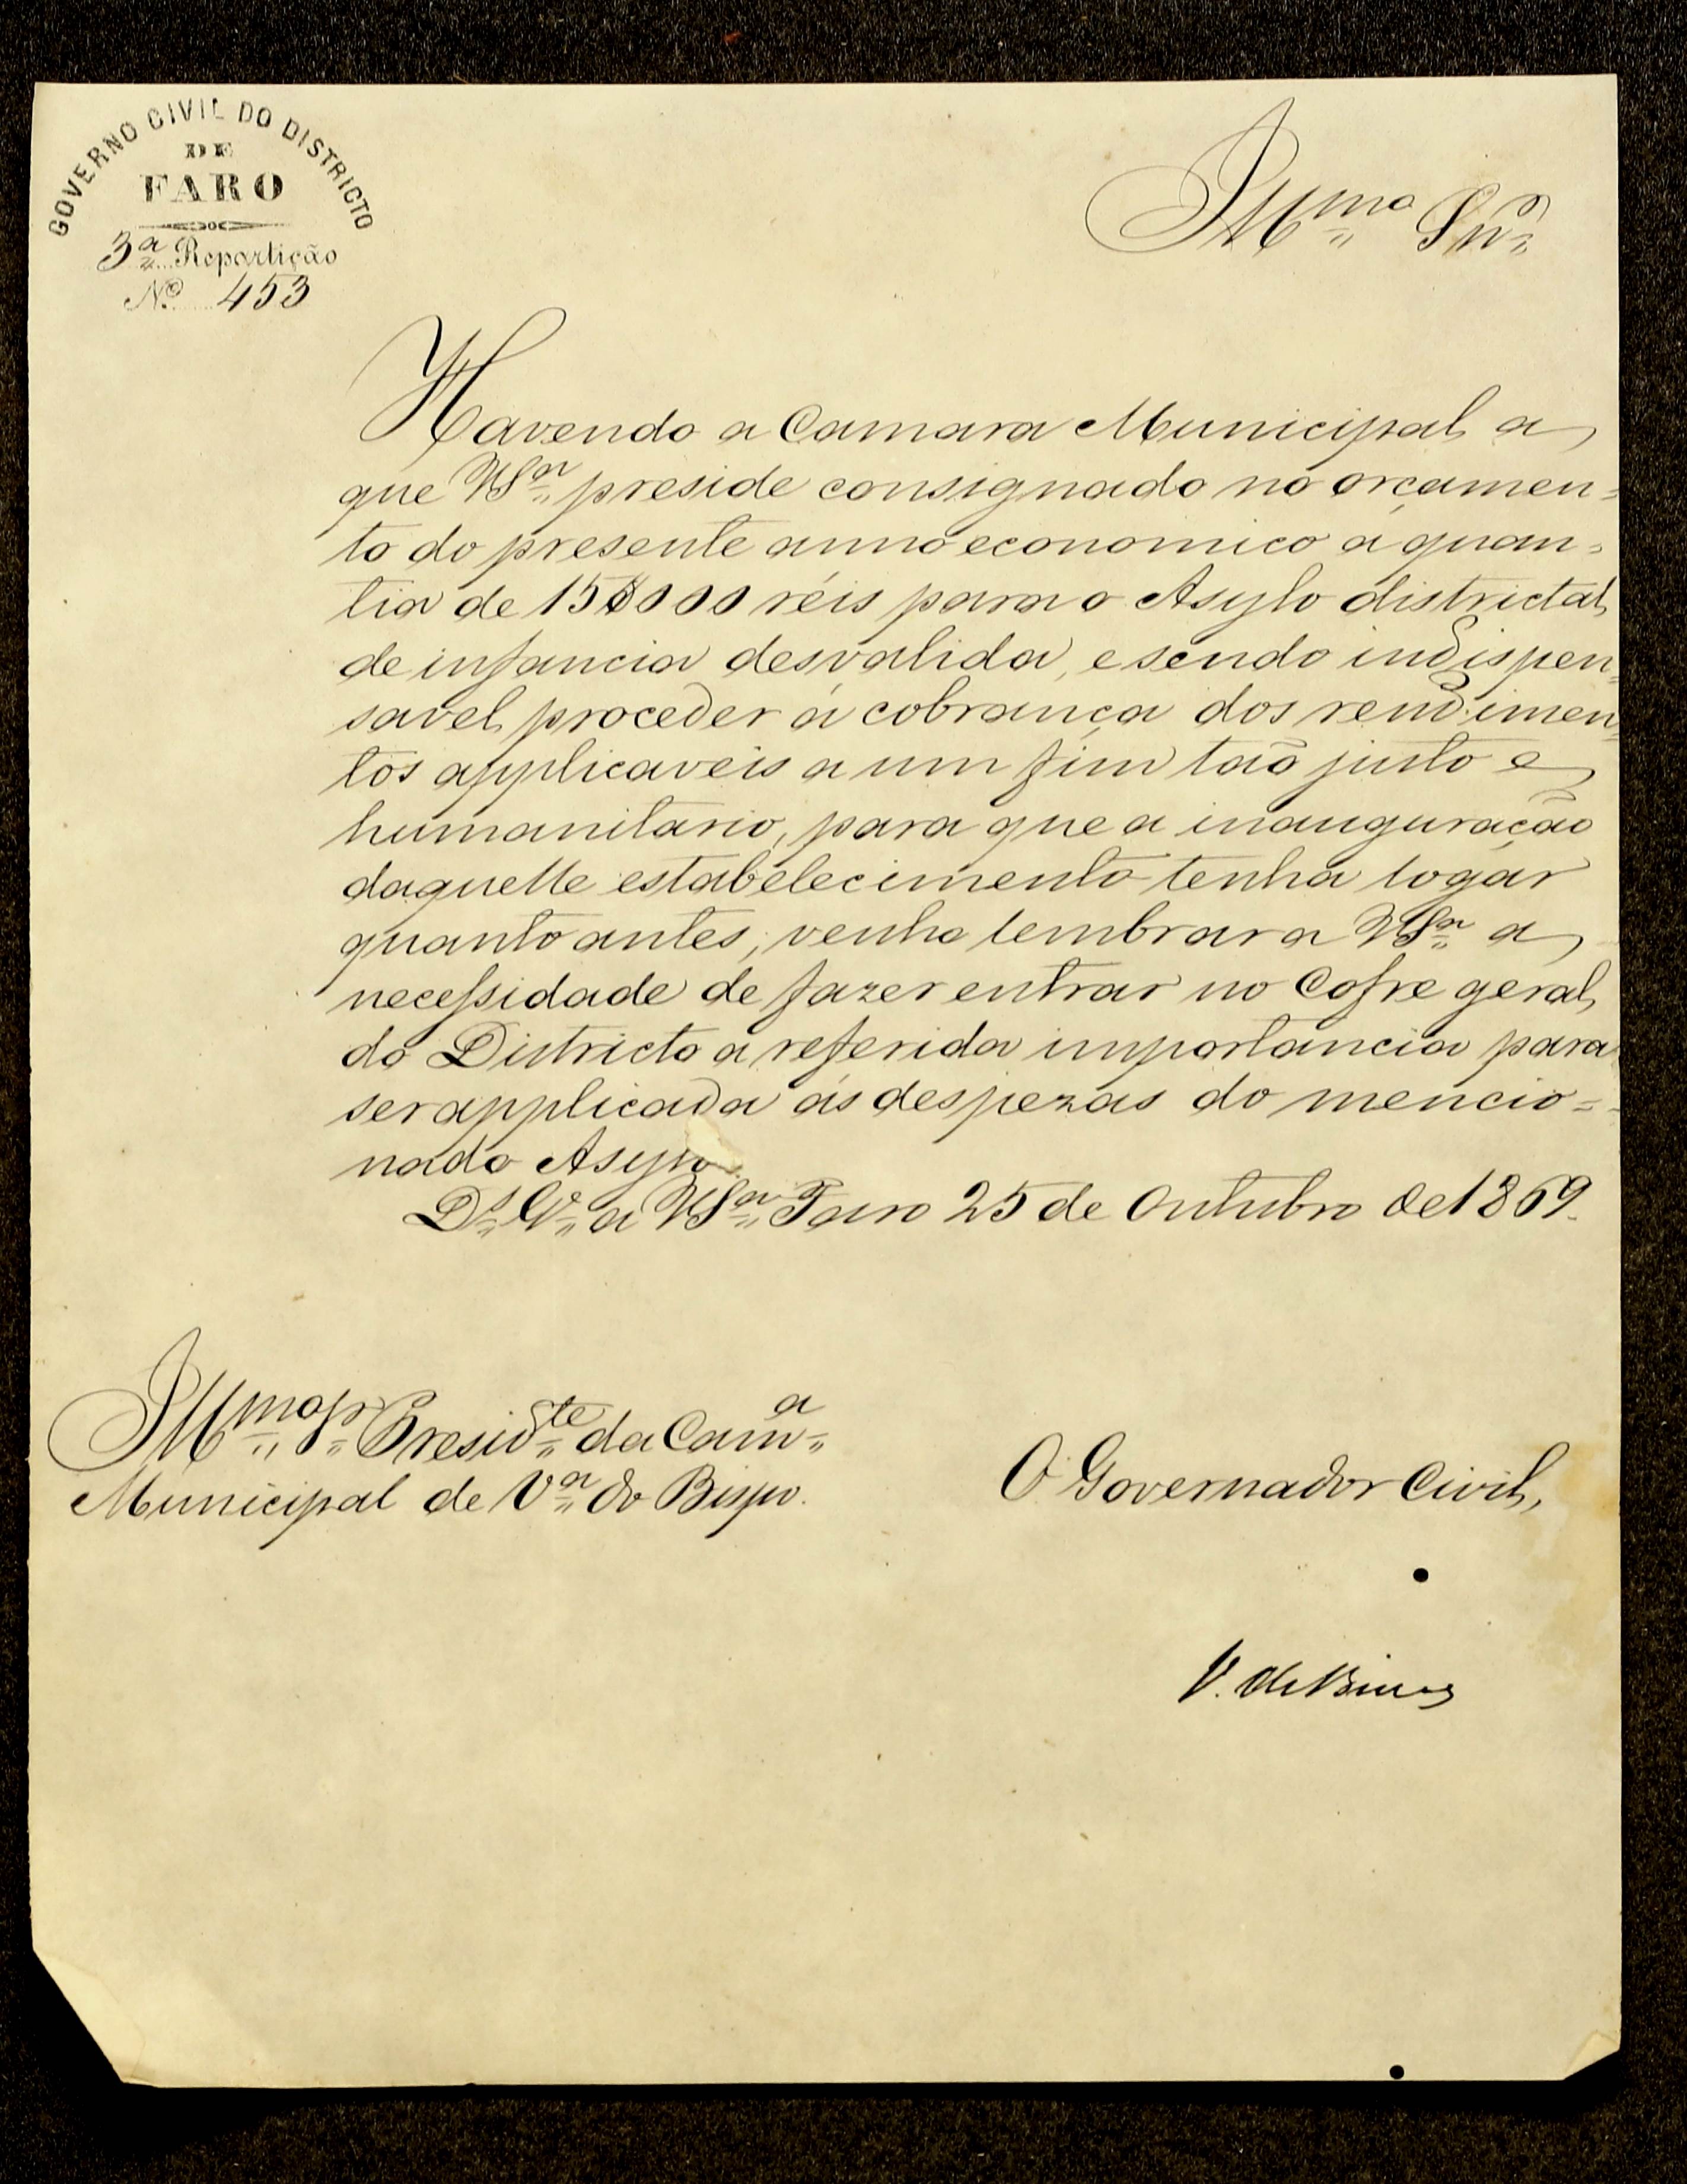 GOVERNO CIVIL DO DISTRICTO
DE
FARO
3ª Repartição
Nº 453
Illmo Snr
Havendo a Camara Municipal a
que VSª preside consignado no orçamen=
to do presente anno economico a quan=
tia de 15$000 réis para o Asylo districtal
de infancia desvalida, e sendo indispen=
savel proceder á cobrança dos rendimen=
tos applicaveis a um fim tão justo e
humanitario, para que a inauguração
daquelle estabelecimento tenha logar
quanto antes, venho lembrar a VSª a
necessidade de fazer entrar no Cofre geral
do Districto a referida importancia para
ser applicada ás despezas do mencio=
nado Asylo.
Ds Ge a VSª Faro 25 de Outubro de 1869.
Illmo Sr Presidte da Camª
Municipal de Vª do Bispo.
O Governador Civil,
V. de